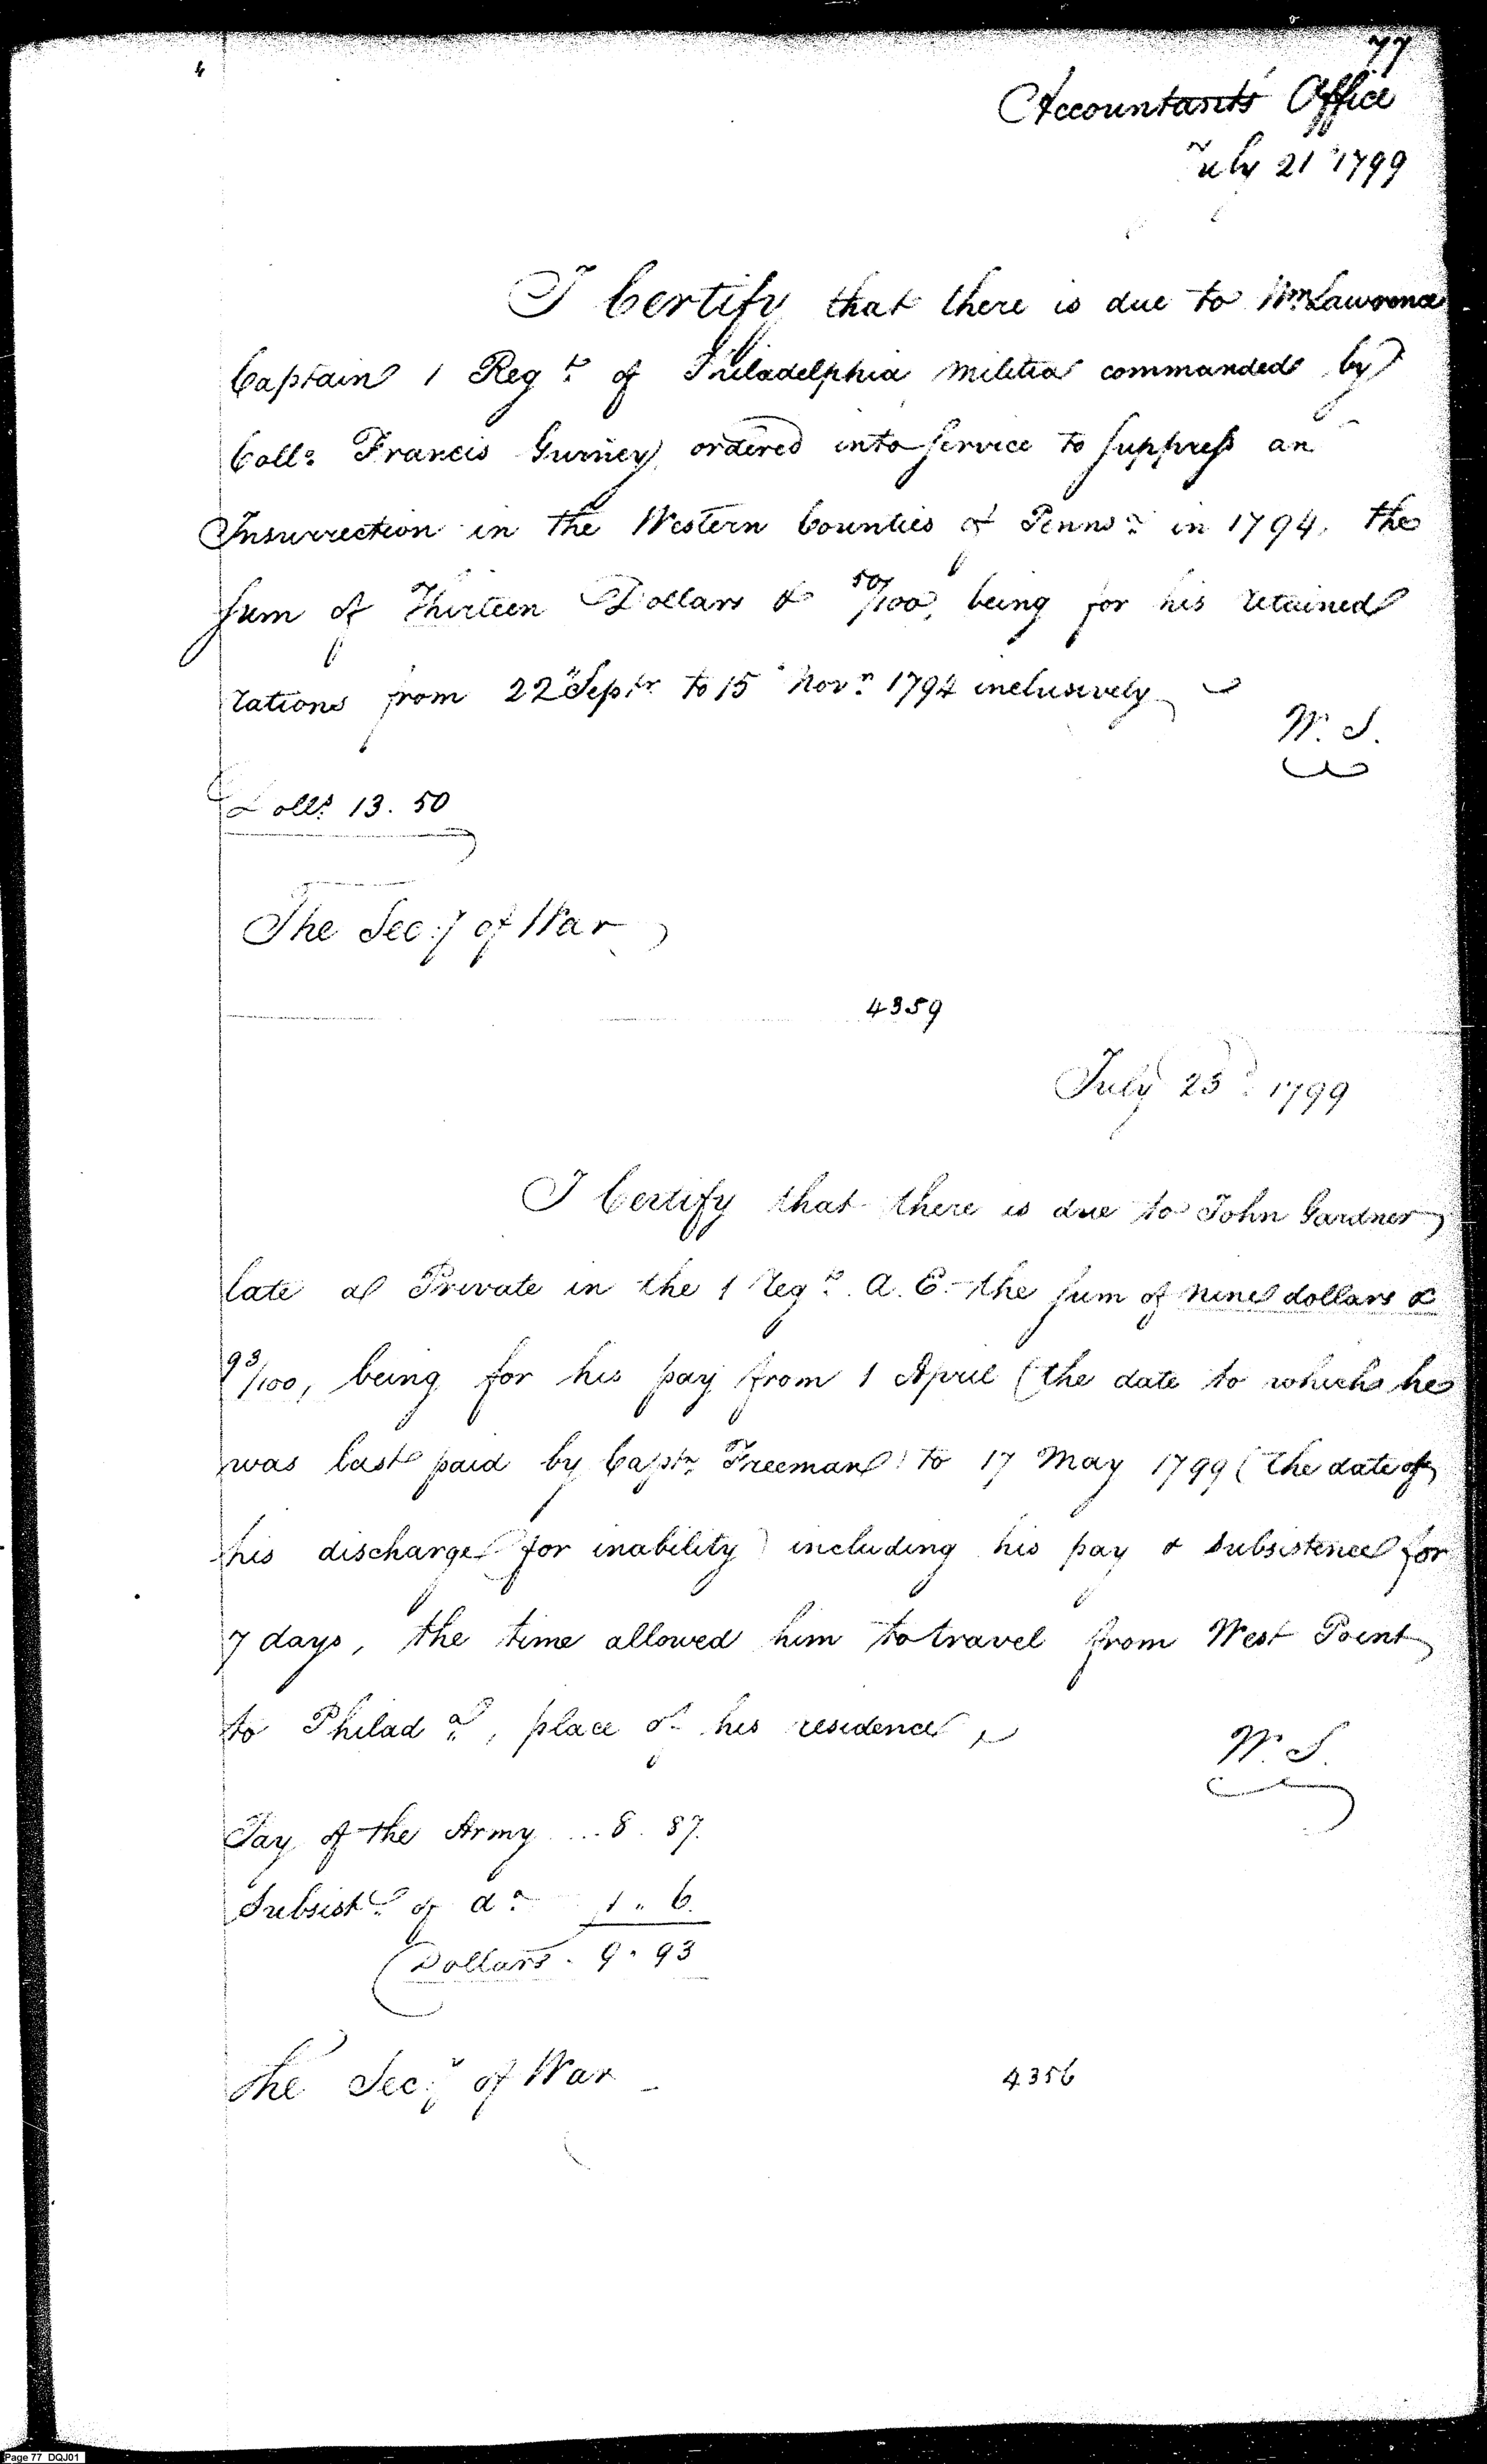 77
Accountants Office
July 21 1799
I Certify that there is due to Wm Lawrence
Captain 1 Regt. of Philadelphia Militia commanded by
Collo. Francis Gurney, ordered into Service to Suppress an
Insurrection in the Western Counties of Pennsa. in 1794, the
Sum of Thirteen Dollars & 50/100, being for his retained
rations from 22d Septr to 15 Novr. 1794 inclusively
W. S.
Dolls. 13. 50
The Secy of War
4359
July 23d. 1799
I Certify that there is due to John Gardner
late a Private in the 1 Regt. A. E. the Sum of nine dollars &
93/100, being for his pay from 1 April (the date to which he
was last paid by Captn. Freeman) to 17 May 1799 (the date of
his discharge for inability) including his pay & Subsistence for
7 days, the time allowed him to travel from West Point
to Philada., place of his residence,
W. S.
Pay of the Army ... 8. 87.
Subsistce. of do. 1 " 6.
Dollars. 9. 93
The Secy. of War
4356
Page 77 DQJ01